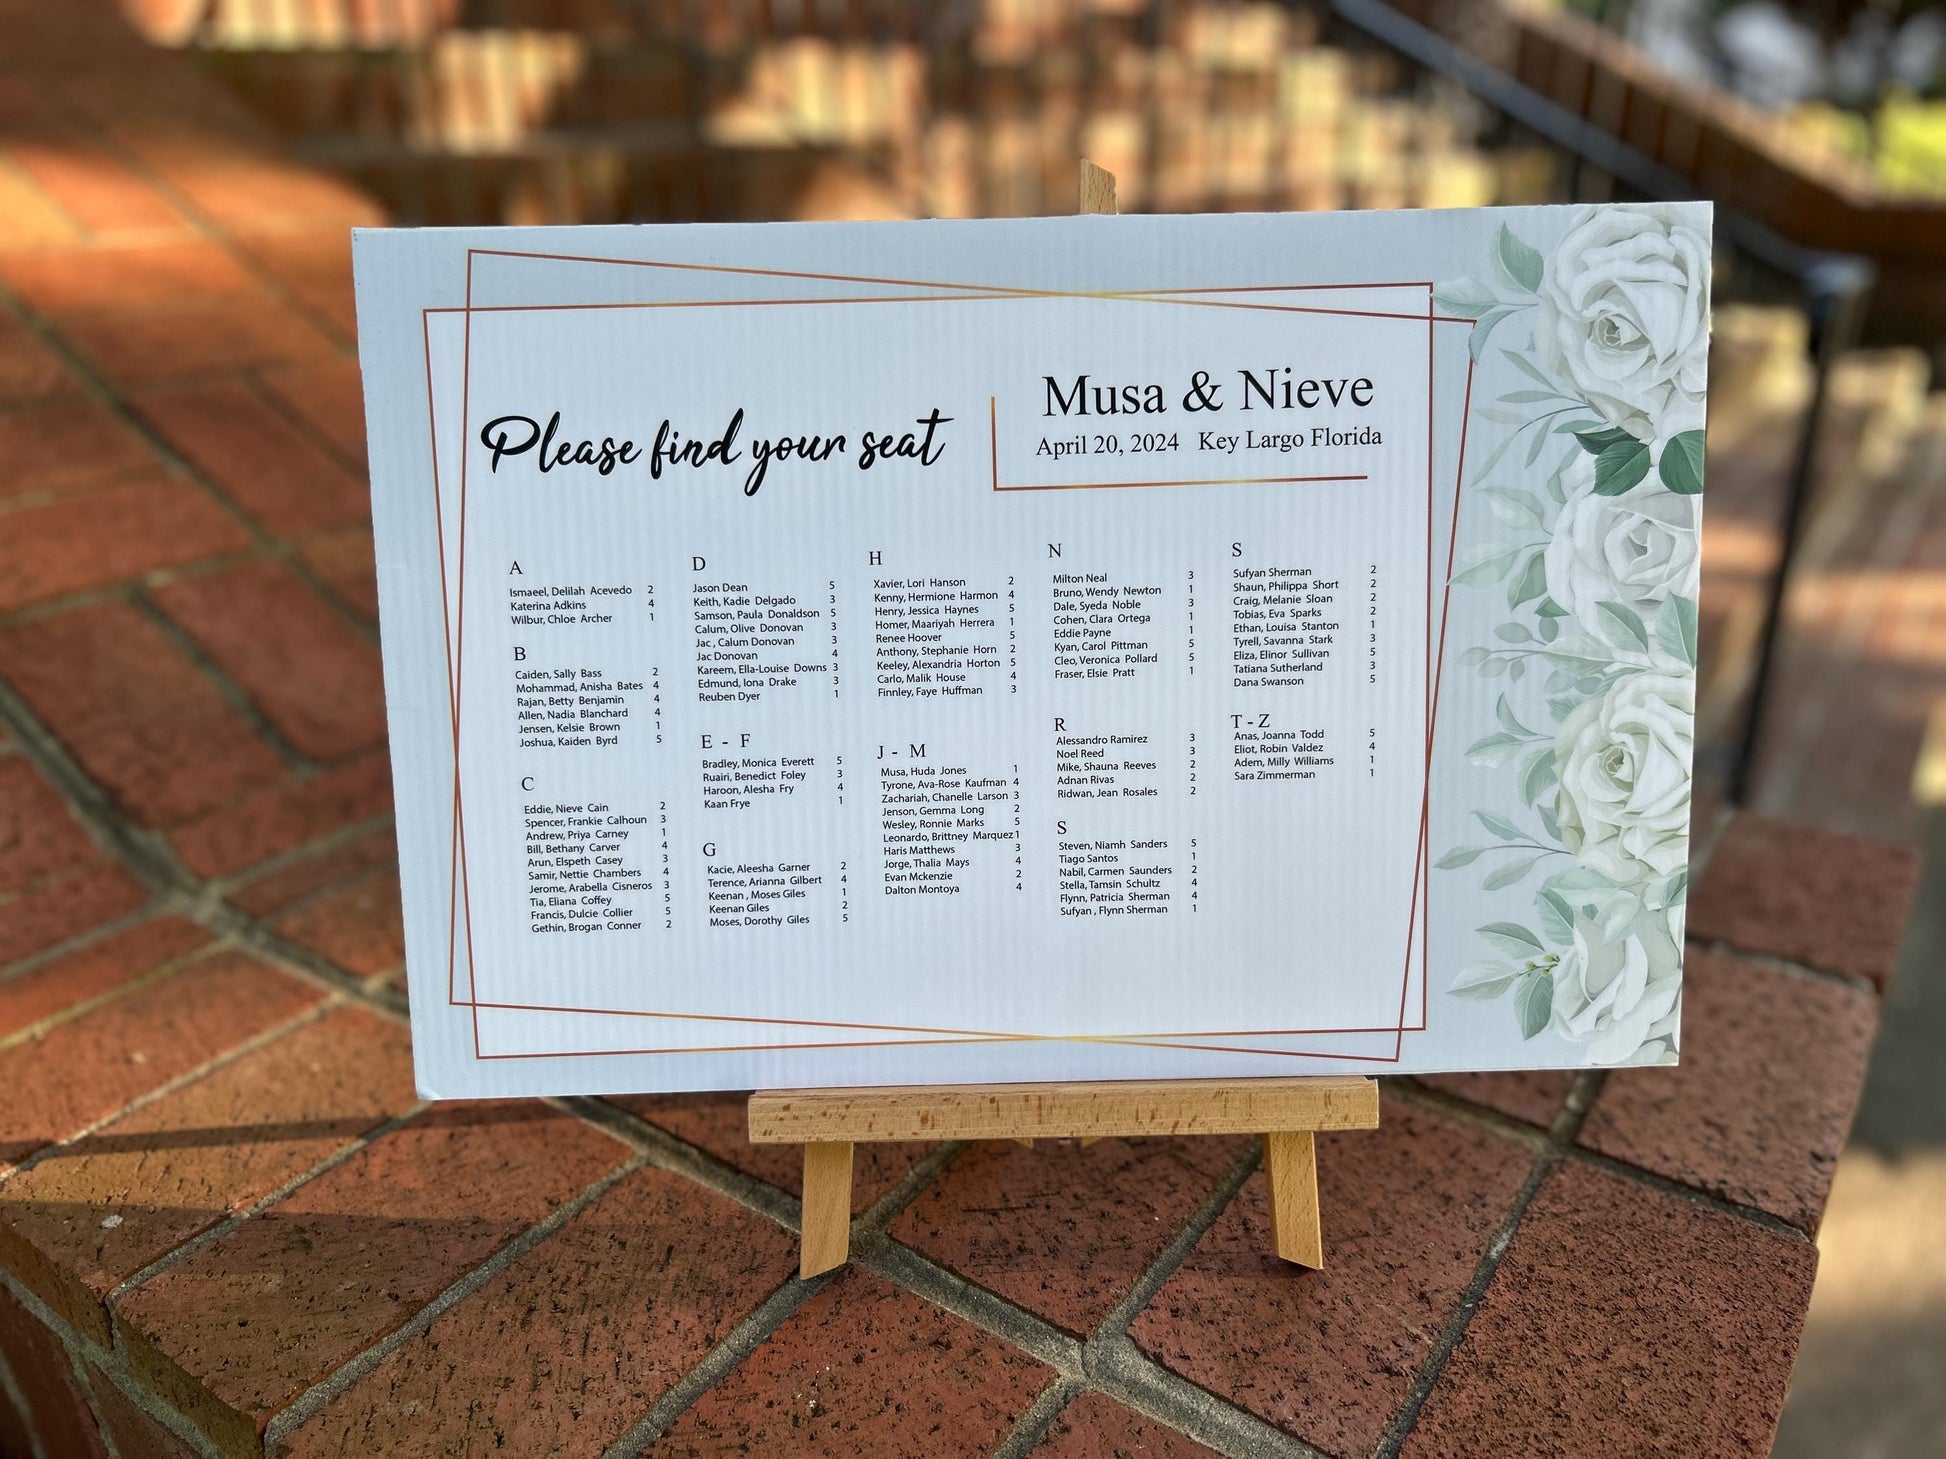 Please find your seat
Musa & Nieve
April 20, 2024 Key Largo Florida
A
Ismaeel, Delilah Acevedo 2
Katerina Adkins 4
Wilbur, Chloe Archer 1
B
Caiden, Sally Bass 2
Mohammad, Anisha Bates 4
Rajan, Betty Benjamin 4
Allen, Nadia Blanchard 4
Jensen, Kelsie Brown 1
Joshua, Kaiden Byrd 5
C
Eddie, Nieve Cain 2
Spencer, Frankie Calhoun 3
Andrew, Priya Carney 1
Bill, Bethany Carver 4
Arun, Elspeth Casey 3
Samir, Nettie Chambers 4
Jerome, Arabella Cisneros 3
Tia, Eliana Coffey 5
Francis, Dulcie Collier 5
Gethin, Brogan Conner 2
D
Jason Dean 5
Keith, Kadie Delgado 3
Samson, Paula Donaldson 5
Calum, Olive Donovan 3
Jac , Calum Donovan 3
Jac Donovan 4
Kareem, Ella-Louise Downs 3
Edmund, Iona Drake 3
Reuben Dyer 1
E - F
Bradley, Monica Everett 5
Ruairi, Benedict Foley 3
Haroon, Alesha Fry 4
Kaan Frye 1
G
Kacie, Aleesha Garner 2
Terence, Arianna Gilbert 4
Keenan , Moses Giles 1
Keenan Giles 2
Moses, Dorothy Giles 5
H
Xavier, Lori Hanson 2
Kenny, Hermione Harmon 4
Henry, Jessica Haynes 5
Homer, Maariyah Herrera 1
Renee Hoover 5
Anthony, Stephanie Horn 2
Keeley, Alexandria Horton 5
Carlo, Malik House 4
Finnley, Faye Huffman 3
J - M
Musa, Huda Jones 1
Tyrone, Ava-Rose Kaufman 4
Zachariah, Chanelle Larson 3
Jenson, Gemma Long 2
Wesley, Ronnie Marks 5
Leonardo, Brittney Marquez 1
Haris Matthews 3
Jorge, Thalia Mays 4
Evan Mckenzie 2
Dalton Montoya 4
N
Milton Neal 3
Bruno, Wendy Newton 1
Dale, Syeda Noble 3
Cohen, Clara Ortega 1
Eddie Payne 1
Kyan, Carol Pittman 5
Cleo, Veronica Pollard 5
Fraser, Elsie Pratt 1
R
Alessandro Ramirez 3
Noel Reed 3
Mike, Shauna Reeves 2
Adnan Rivas 2
Ridwan, Jean Rosales 2
S
Steven, Niamh Sanders 5
Tiago Santos 1
Nabil, Carmen Saunders 2
Stella, Tamsin Schultz 4
Flynn, Patricia Sherman 4
Sufyan , Flynn Sherman 1
S
Sufyan Sherman 2
Shaun, Philippa Short 2
Craig, Melanie Sloan 2
Tobias, Eva Sparks 2
Ethan, Louisa Stanton 1
Tyrell, Savanna Stark 3
Eliza, Elinor Sullivan 5
Tatiana Sutherland 3
Dana Swanson 5
T - Z
Anas, Joanna Todd 5
Eliot, Robin Valdez 4
Adem, Milly Williams 1
Sara Zimmerman 1